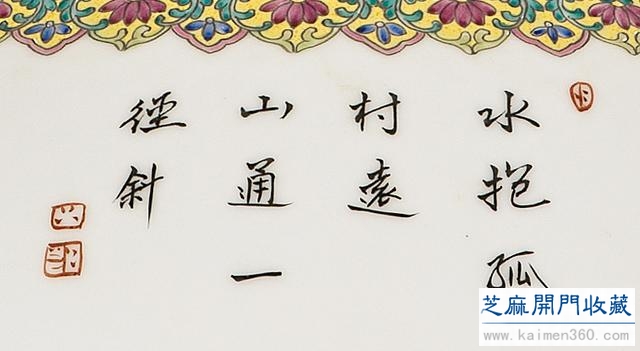 水抱孤
村遠
山通一
徑斜
芝麻開門收藏
www.kaimen360.com